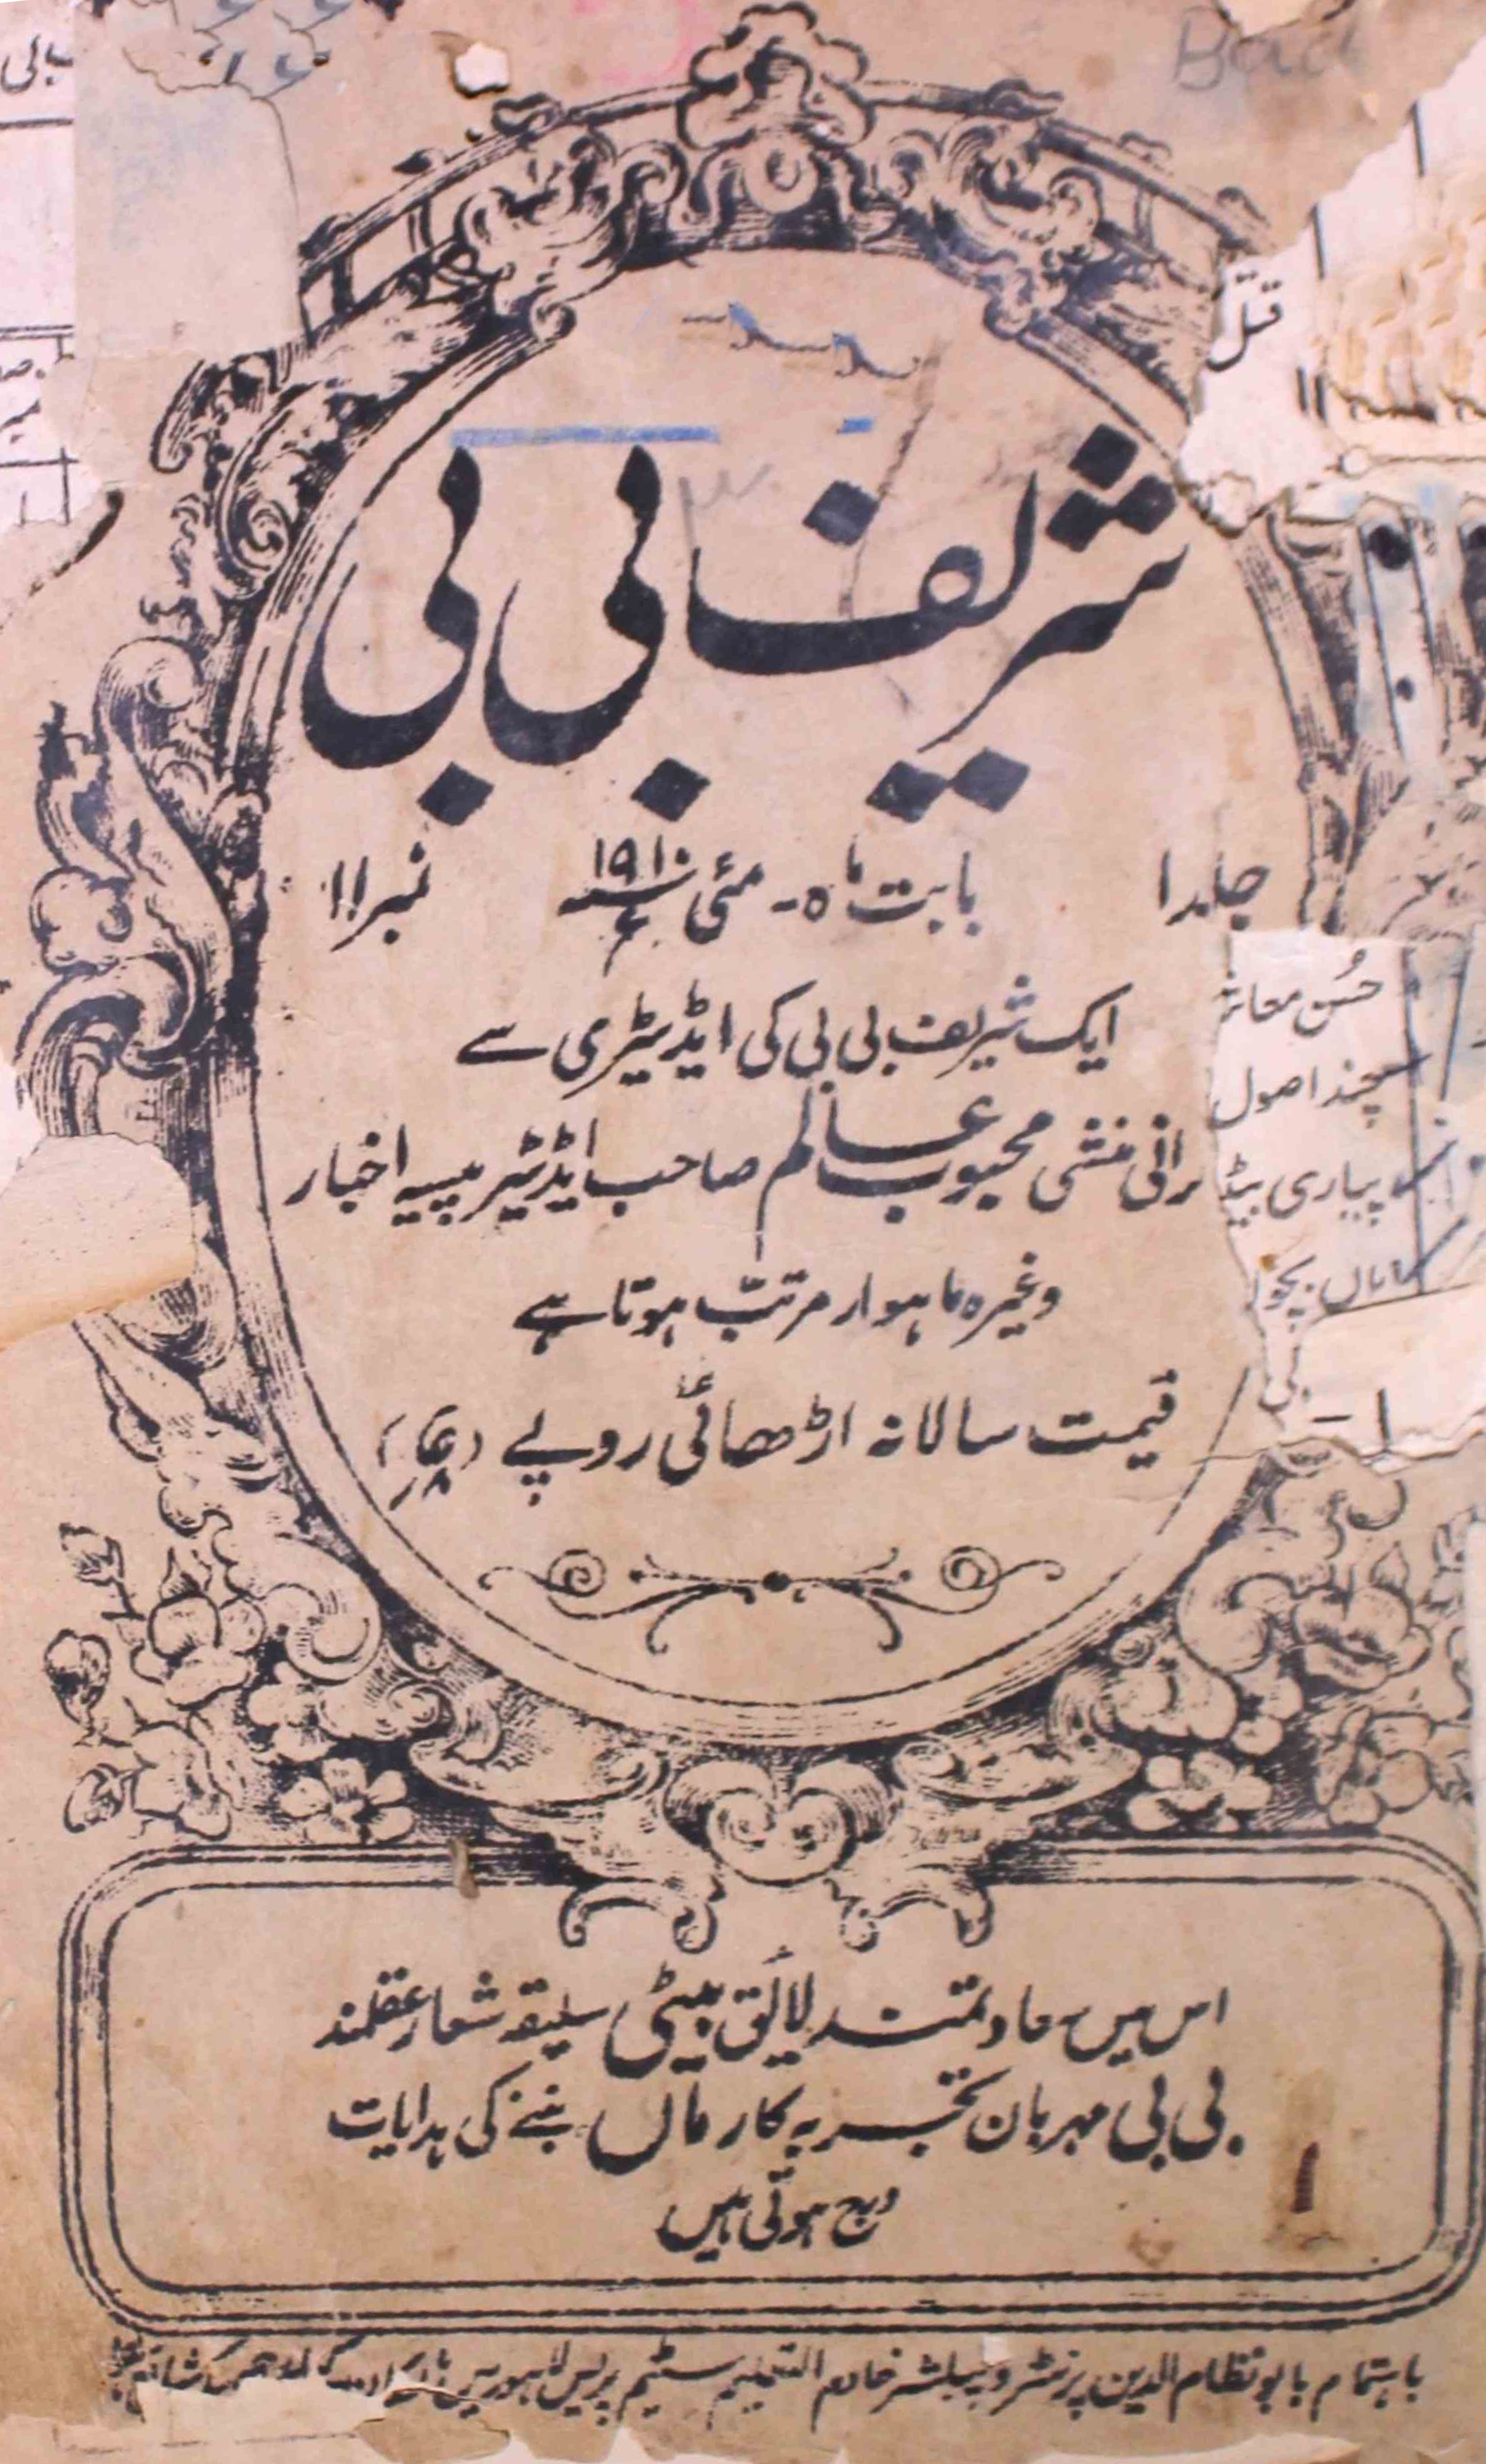 Bad
قبل
شریف بی بی
جلد ۱ بابت ماہ - مئی ۱۹۱۰ء نمبر ۱۱
ایک شریف بی بی کی ایڈیٹری سے
حُسن معاشر
چند اصول
برائی منشی محبوب عالم صاحب ایڈیٹر پیسہ اخبار
پیاری بیٹی
وغیرہ ماہوار مرتب ہوتا ہے
قیمت سالانہ اڑھائی روپے
اس میں سعادتمند لائق بیٹی سلیقہ شعار عقلمند
بی بی مہربان تجربہ کار ماں بننے کی ہدایات
درج ہوتی ہیں
باہتمام بابو نظام الدین پرنٹر و پبلشر خادم التعلیم سٹیم پریس لاہور میں